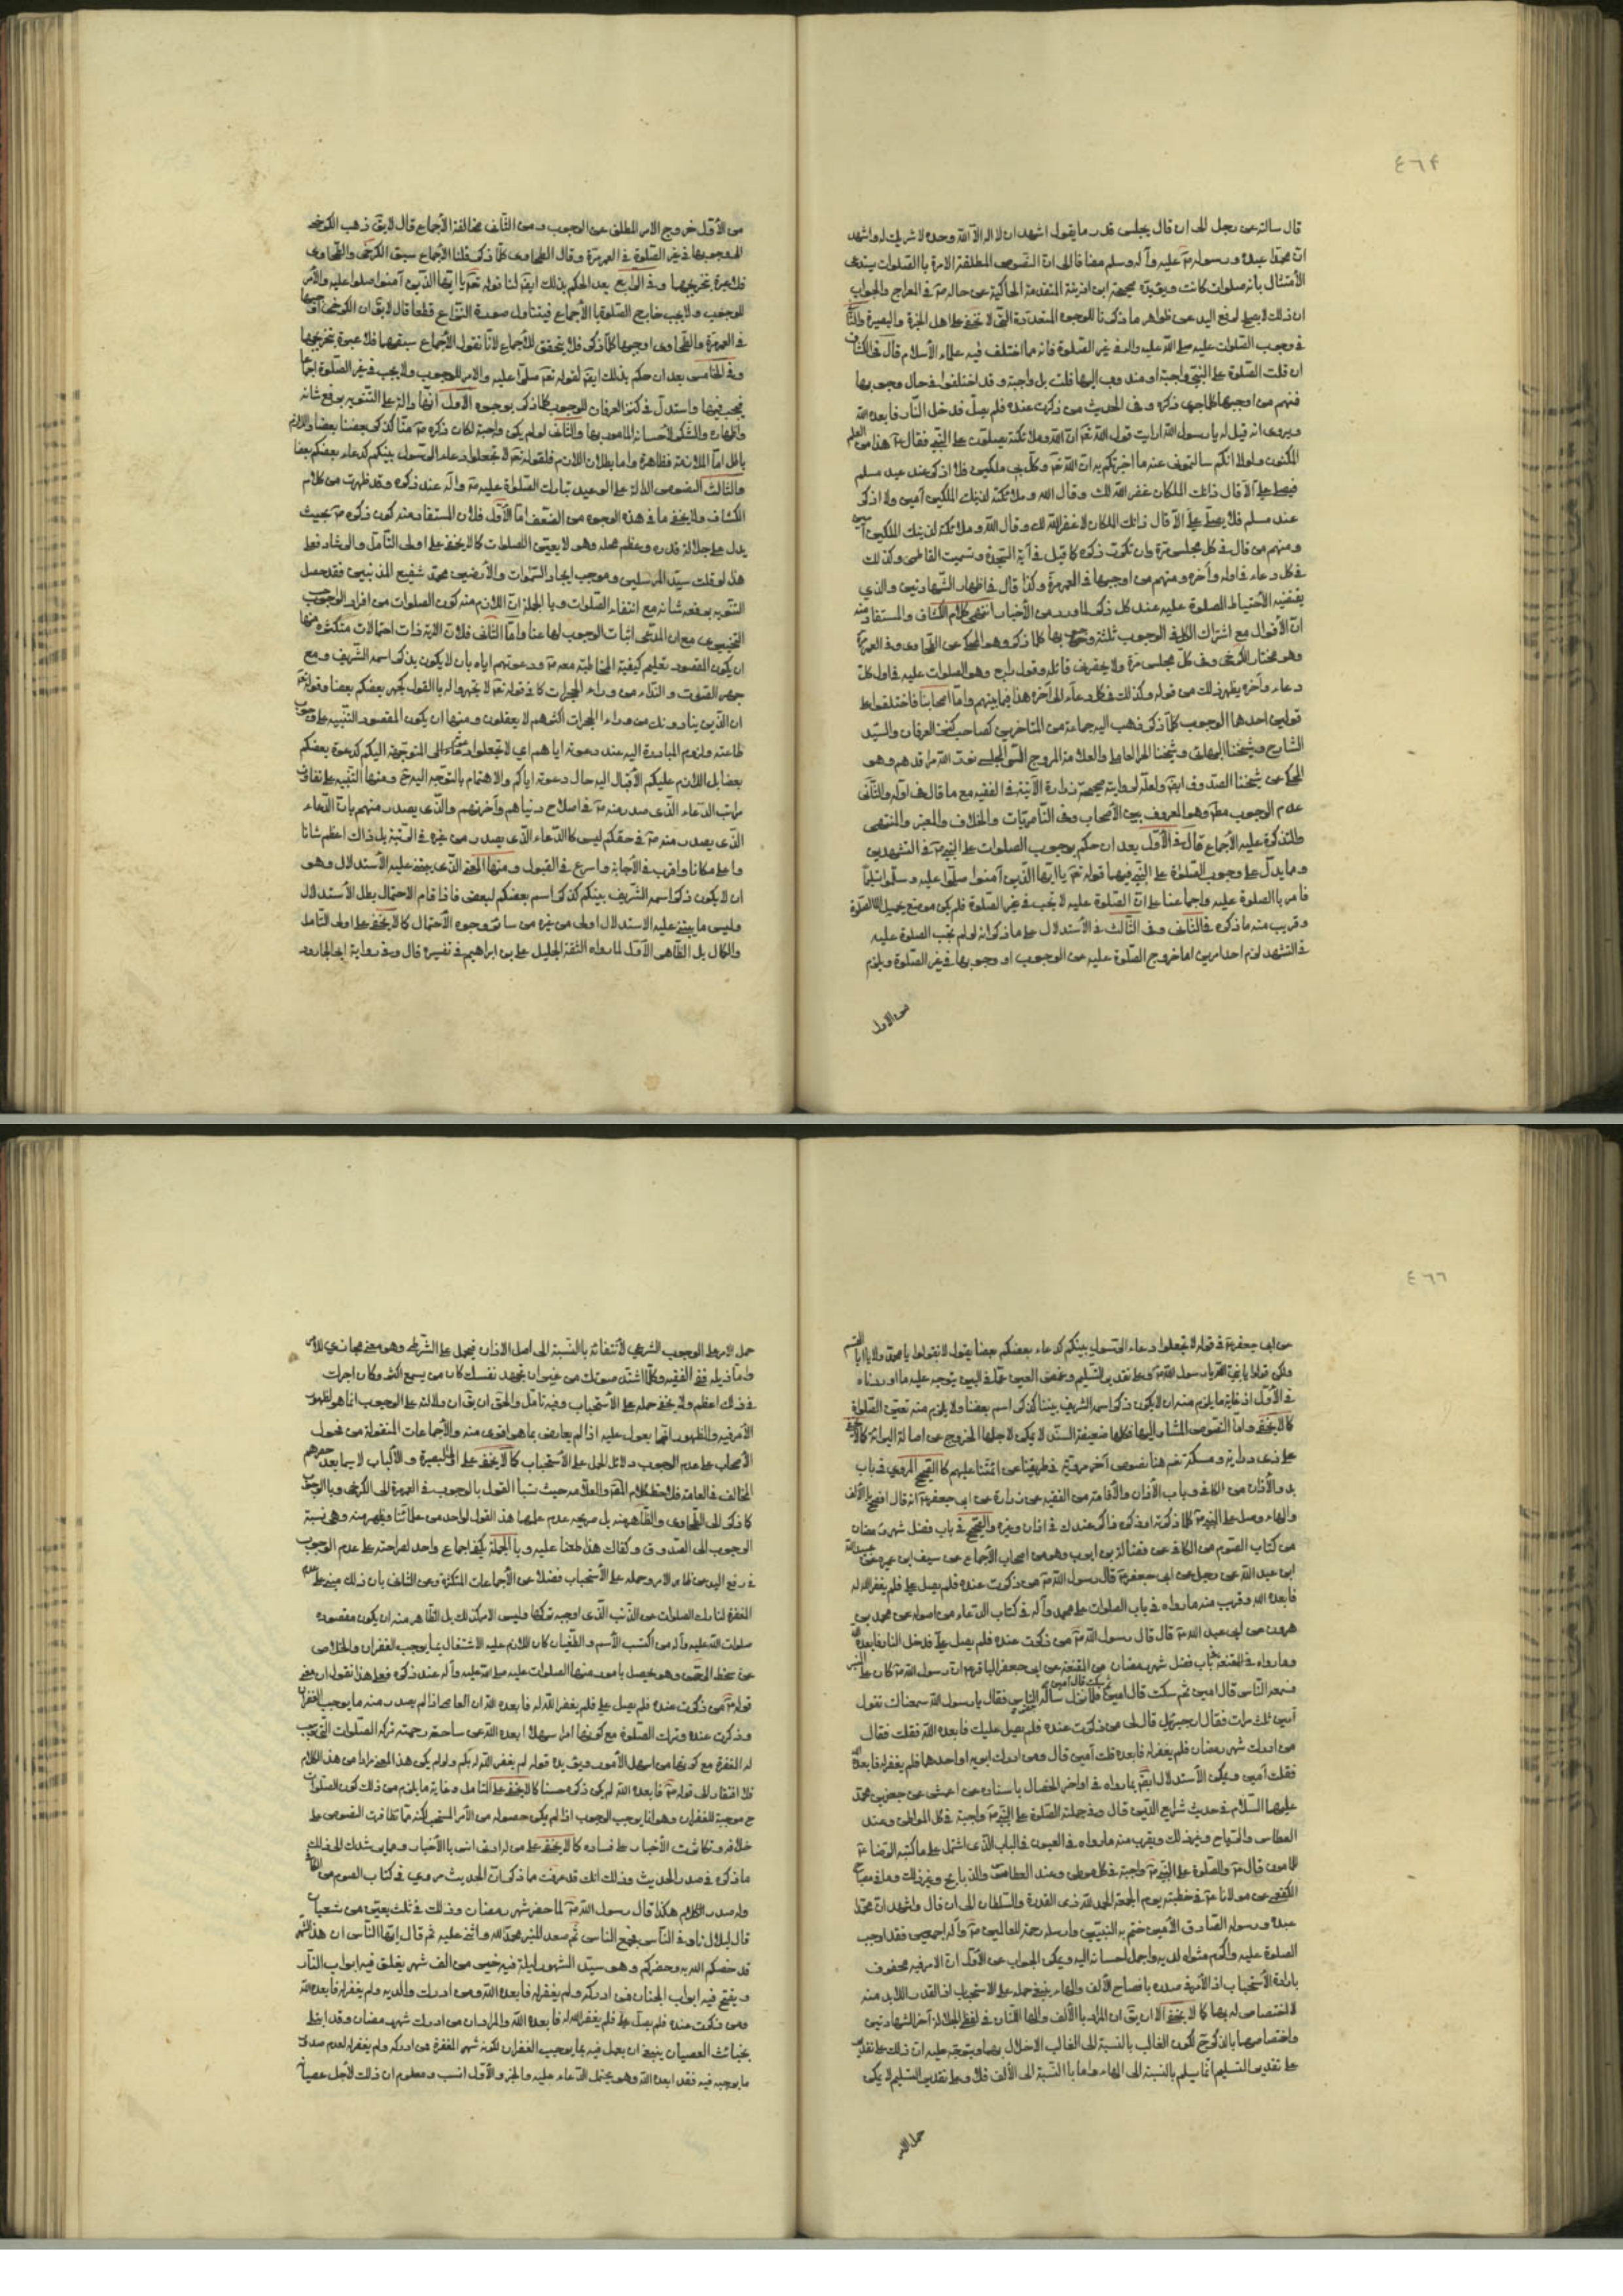 ٤٦٤
قال سالته عن رجل الى ان قال يجلس قدر ما يقول اشهد ان لا اله الا الله وحده لا شريك له واشهد
ان محمدا عبده ورسوله عليه وآله وسلم مضافا الى ان النصوص المطلقة الامرة بالصلوات يستدعى
الأمتثال باية صلوات كانت ويؤيده صحيحة ابن اذينة المتقدمة الحاكية عن حاله في المعراج والجواب
ان ذلك لا يصلح لرفع اليد عن ظواهر ما ذكرنا للوجوه المتعددة التي لا تخفى على اهل الخبرة والبصيرة
في وجوب الصلوات عليه صلى الله عليه وآله في غير الصلوة فانه مما اختلف فيه علماء الأسلام قال في الكشاف
ان قلت الصلوة على النبي واجبة او مندوب اليها قلت بل واجبة وقد اختلفوا في حال وجوبها
فمنهم من اوجبها كلما جرى ذكره وفي الحديث من ذكرت عنده فلم يصل فدخل النار فابعده الله
ويروى انه قيل له يا رسول الله ارايت قول الله تعم ان الله وملائكته يصلون على النبي فقال هذا من العلم
المكنون ولولا انكم سالتموني عنه ما اخبرتكم به ان الله وكل بي ملكين فلا اذكر عند عبد مسلم
فيصلي على الا قال ذانك الملكان غفر الله لك وقال الله وملائكته لذينك الملكين آمين ولا اذكر
عند مسلم فلا يصلي على الا قال ذانك الملكان لا غفر الله لك وقال الله وملائكته لذينك الملكين آمين
ومنهم من قال في كل مجلس مرة وان تكرر ذكره كما قيل في آية السجدة وتسميت العاطس وكذلك
في كل دعاء في اوله وآخره ومنهم من اوجبها في العمر مرة وكذا قال في اظهار الشهادتين والذي
يقتضيه الأحتياط الصلوة عليه عند كل ذكر لما ورد من الأخبار انتهى كلام الكشاف والمستفاد منه
ان الأقوال مع اشتراك الكل في الوجوب ثلثة وجوبها كلما ذكر وهو المحكى عن الطحاوى وفي العمر مرة
وهو مختار الكرخى وفي كل مجلس مرة ولا يحضرني قائله وقول رابع وهو الصلوات عليه في اول كل
دعاء وآخره يظهر ذلك من قوله وكذلك في كل دعاء الى آخره هذا فيما بينهم واما اصحابنا فاختلفوا على
قولين احدها الوجوب كلما ذكر ذهب اليه جماعة من المتاخرين كصاحب كنز العرفان والسيد
الشارح وشيخنا البهائى وشيخنا الحر العاملى والعلامة المروج التقى المجلسى نور الله مراقدهم وهو
المحكى عن شيخنا الصدوق ايضا ولعله لرواية صحيحة زرارة الآتية في الفقيه مع ما قال في اوله والثانى
عدم الوجوب مطلقا وهو المعروف بين الأصحاب وفي الناصريات والخلاف والمعتبر والمنتهى
والتذكرة عليه الأجماع قال في الأول بعد ان حكم بوجوب الصلوات على النبي في التشهدين
ومما يدل على وجوب الصلوة على النبي فيهما قوله تعم يا ايها الذين آمنوا صلوا عليه وسلموا تسليما
فامر بالصلوة عليه واجماعنا على ان الصلوة عليه لا تجب في غير الصلوة فلم يكن موضع يحمل الا الصلوة
وقريب منه ما ذكره في الثانى وفي الثالث في الأستدلال على ما ذكر انه لو لم تجب الصلوة عليه
في التشهد لزم احد امرين اما خروج الصلوة عليه عن الوجوب او وجوبها في غير الصلوة ويلزم
من الاول
من الأول خروج الامر المطلق عن الوجوب ومن الثانى مخالفة الأجماع قال لا يق ذهب الكرخى
الى وجوبها في غير الصلوة في العمر مرة وقال الطحاوى كلما ذكر قلنا الأجماع سبق الكرخى والطحاوى
فلا عبرة بتخريجهما وفي الرابع بعد الحكم بذلك ايضا لنا قوله تعم يا ايها الذين آمنوا صلوا عليه والأمر
للوجوب ولا يجب خارج الصلوة بالأجماع فيتناول صورة النزاع قطعا قال لا يق ان الكرخى اوجبها
في العمر مرة والطحاوى اوجبها كلما ذكر فلا يتحقق الأجماع لانا نقول الأجماع سبقهما فلا عبرة بتخريجهما
وفي الخامس بعد ان حكم بذلك ايضا لقوله تعم صلوا عليه والامر للوجوب ولا يجب في غير الصلوة اجماعا
فيجب فيها واستدل في كنز العرفان للوجوب كلما ذكر بوجوه الاول انها دالة على التنويه برفع شانه
واظهاره والشكر لأحسانه المأمور بها والثانى لو لم يكن واجبة لكان ذكره كذكر بعضنا بعضا واللازم
باطل اما الملازمة فظاهرة واما بطلان اللازم فلقوله تعم لا تجعلوا دعاء الرسول بينكم كدعاء بعضكم بعضا
والثالث النصوص الدالة على الوعيد بتارك الصلوة عليه وآله عند ذكره وقد ظهرت من كلام
الكشاف ولا يخفى ما في هذه الوجوه من الضعف اما الأول فلان المستفاد منه كون ذكره بحيث
يدل على جلالة قدره وعظم محله وهو لا يعين الصلوات كما لا يخفى على اولى التأمل والرشاد فعلى
هذا لو قلت سيد المرسلين وموجب ايجاد السموات والأرضين محمد شفيع المذنبين فقد حصل
التنويه برفعة شانه مع انتفاء الصلوات وبالجملة ان اللازم منه كون الصلوات من افراد الوجوب
التخييرى مع ان المدعى اثبات الوجوب لها عينا واما الثانى فلان الاية ذات احتمالات متكثرة منها
ان يكون المقصود تعليم كيفية المخاطبة معه ودعوتهم اياه بان لا يكون بذكر اسمه الشريف ومع
جهر الصوت والنداء من وراء الحجرات كما في قوله تعم لا تجهروا له بالقول كجهر بعضكم بعضا وقوله تعم
ان الذين ينادونك من وراء الحجرات اكثرهم لا يعقلون ومنها ان يكون المقصود التنبيه على وجوب
طاعته ولزوم المبادرة اليه عند دعوته اياهم اي لا تجعلوا دعائه المتوجهة اليكم كدعوة بعضكم
بعضا بل اللازم عليكم الأقبال اليه حال دعوته اياكم والاهتمام بالتوجه اليه ومنها التنبيه على تفاوت
مراتب الدعاء الذى صدر منه في اصلاح دنياهم وآخرتهم والذى يصدر منهم بان الدعاء
الذى يصدر منه في حقكم ليس كالدعاء الذى يصدر من غيره في المرتبة بل ذاك اعظم شانا
واعلى مكانا واقرب في الأجابة واسرع في القبول ومنها المعنى الذى يبتنى عليه الأستدلال وهو
ان لا يكون ذكر اسمه الشريف بينكم كذكر اسم بعضكم لبعض فاذا قام الاحتمال بطل الأستدلال
وليس ما يبتنى عليه الاستدلال اولى من غيره من سائر وجوه الأحتمال كما لا يخفى على اولى التامل
والكمال بل الظاهر الأول لما رواه الثقة الجليل على بن ابراهيم في تفسيره قال وفي رواية ابى الجارود
٤٦٦
عن ابى جعفر في قوله لا تجعلوا دعاء الرسول بينكم كدعاء بعضكم بعضا يقول لا تقولوا يا محمد ولا يا ابا القسم
ولكن قولوا يا نبي الله ويا رسول الله وعلى تقدير التسليم وغمض العين عما في البين يتوجه عليه ما اوردناه
في الأول اذ غاية ما يلزم منه ان لا يكون ذكر اسمه الشريف بيننا كذكر اسم بعضنا ولا يلزم منه تعيين الصلوة
كما لا يخفى واما النصوص المشار اليها فكلها ضعيفة السند لا يمكن لاجلها الخروج عن اصالة البرائة كما لا يخفى
على ذى دراية ومسكة نعم هنا نصوص آخر مروية في طريقنا عن ائمتنا عليهم كالصحيح المروى في باب
بدو الأذان من الكافى وباب الأذان والأقامة من الفقيه عن زرارة عن ابى جعفر انه قال افصح بالالف
والهاء وصل على النبي كلما ذكرته او ذكره ذاكر عندك في اذان وغيره والصحيح في باب فضل شهر رمضان
من كتاب الصوم من الكافى عن فضالة بن ايوب وهو من اصحاب الأجماع عن سيف ابن عميرة عن عبد الله
ابن عبد الله عن رجل عن ابى جعفر قال قال رسول الله من ذكرت عنده فلم يصل على فلم يغفر الله له
فابعده الله وقريب منه ما رواه في باب الصلوات على محمد وآله في كتاب الدعاء من اصوله عن محمد بن
هرون عن ابى عبد الله قال قال رسول الله من ذكرت عنده فلم يصل على فدخل النار فابعده الله
وما رواه في المقنعة في باب فضل شهر رمضان من المقنعة عن ابى جعفر الباقر ان رسول الله كان على المنبر
آمين ثلث مرات فقال ان جبرئيل قال لى من ذكرت عنده فلم يصل عليك فابعده الله فقلت فقال
من ادرك شهر رمضان فلم يغفر له فابعده قلت آمين قال ومن ادرك ابويه او احدهما فلم يغفر له فابعده الله
فقلت آمين ويمكن الأستدلال ايضا بما رواه في اواخر الخصال باسناده عن اعمش عن جعفر بن محمد
عليهما السلام في حديث شرايع الدين قال في جملته الصلوة على النبي واجبة في كل المواطن وعند
العطاس والرياح وغير ذلك ويقرب منه ما رواه في العيون في الباب الذى اشتمل على ما كتبه الرضا
للمامون قال والصلوة على النبي واجبة في كل موطن وعند العطاس والذبايح وغير ذلك وما في مصباح
الكفعمى عن مولانا في خطبته يوم الجمعة الحمد لله ذى القدرة والسلطان الى ان قال واشهد ان محمدا
عبده ورسوله الصادق الأمين ختم به النبيين وارسله رحمة للعالمين وآله اجمعين فقد اوجب
الصلوة عليه واكرم مثواه لديه واجمل احسانه اليه ويمكن الجواب عن الأول ان الامر فيه محفوف
بارادة الأستحباب اذ الأمر في صدره بافصاح الألف والهاء ينبغى حمله على الاستحباب اذ القدر اللابد منه
لا اختصاص له بها كما لا يخفى الا ان يق ان المراد بالألف والهاء اللتان في لفظ الجلالة في آخر الشهادتين
واختصاصها بالذكر لكون الغالب بالنسبة الى الغالب الاخلال بهما ويتوجه عليه ان ذلك على تقدير
على تقدير التسليم انما يسلم بالنسبة الى الهاء واما بالنسبة الى الألف فلا وعلى تقدير التسليم لا يمكن
حمل الامر
حمل الامر على الوجوب الشرعي لأنتفائه بالنسبة الى اصل الاذان فيحمل على الشرطى وهو معنى مجازى للامر
واما ذيله ففى الفقيه وكلما اشتد صوتك من غير ان تجهد نفسك كان من يسمع اكثر وكان اجرك
في ذلك اعظم ولا يخفى حمله على الأستحباب وفيه تامل والحق ان يق ان دلالته على الوجوب انما هو لظهور
الأمر فيه والظهور انما يعول عليه اذا لم يعارض بما هو اقوى منه والأجماعات المنقولة من فحول
الأصحاب على عدم الوجوب دلائل الحمل على الأستحباب كما لا يخفى على اولى البصيرة والألباب لا سيما بعد حصرهم
المخالف في العامة فلاحظ كلام المحقق والعلامة حيث نسبا القول بالوجوب في العمر مرة الى الكرخى وبالوجوب
كلما ذكر الى الطحاوى والظاهر منه بل صريحه عدم علمهما هذا القول لواحد من علمائنا ويظهر منه وهن نسبة
الوجوب الى الصدوق وكفاك هذا طعنا عليه وبالجملة يكفى اجماع واحد لصراحته على عدم الوجوب
في رفع اليد عن ظاهر الامر وحمله على الأستحباب فضلا عن الأجماعات المتكثرة وعن الثانى بان ذلك مبنى على عدم
المغفرة لتارك الصلوات عن الذنب الذى اوجبه تركها وليس الامر كذلك بل الظاهر منه ان يكون مقصوده
صلوات الله عليه وآله من اكتسب الأسم والطغيان كان اللازم عليه الاشتغال بما يوجب الغفران والخلاص
عن سخط الرحمن وهو يحصل بامور منها الصلوات عليه صلى الله عليه وآله عند ذكره فعلى هذا نقول ان معنى
قوله من ذكرت عنده فلم يصل على فلم يغفر الله له فابعده الله ان العاصى اذا لم يصدر منه ما يوجب الغفران
وذكرت عنده وترك الصلوة مع كونها امرا سهلا ابعده الله عن ساحة رحمته لتركه الصلوات التى توجب
له المغفرة مع كونها من اسهل الأمور ويؤيده قوله لم يغفر الله له بكم ولو لم يكن هذا المعنى مرادا من هذا الكلام
فلا افتقار الى قوله فابعده الله لم يكن ذكره حسنا كما لا يخفى على المتامل وغاية ما يلزم من ذلك كون الصلوات
ح موجبة للغفران وهو انما يوجب الوجوب اذا لم يكن حصوله من الأمر المستحب لكنه مما تظافرت النصوص على
خلافه وتكاثرت الأخبار على فساده كما لا يخفى على من له ادنى انس بالأخبار ومما يرشدك الى ذلك
ما ذكره في صدر الحديث وذلك انك قد عرفت ما ذكر ان الحديث مروى في كتاب الصوم من الكافى
وله صدر والكلام هكذا قال رسول الله لما حضر شهر رمضان وذلك في ثلث بقين من شعبان
قال لبلال ناد في الناس فجمع الناس ثم صعد المنبر فحمد الله واثنى عليه ثم قال ايها الناس ان هذا الشهر
قد خصكم الله به وحضركم وهو سيد الشهور ليلة فيه خير من الف شهر يغلق فيه ابواب النار
ويفتح فيه ابواب الجنان فمن ادركه ولم يغفر له فابعده الله ومن ادرك والديه ولم يغفر له فابعده الله
ومن ذكرت عنده فلم يصل على فلم يغفر الله له فابعده الله والمراد ان من ادرك شهر رمضان وقد ابتلى
بخبائث العصيان ينبغى ان يعمل فيه بما يوجب الغفران لكونه شهر المغفرة فمن ادركه ولم يغفر له لعدم صدور
ما يوجبه فيه فقد ابعده الله وهو يحتمل الدعاء عليه والخبر والأول انسب ومعلوم ان ذلك لأجل عصيانه